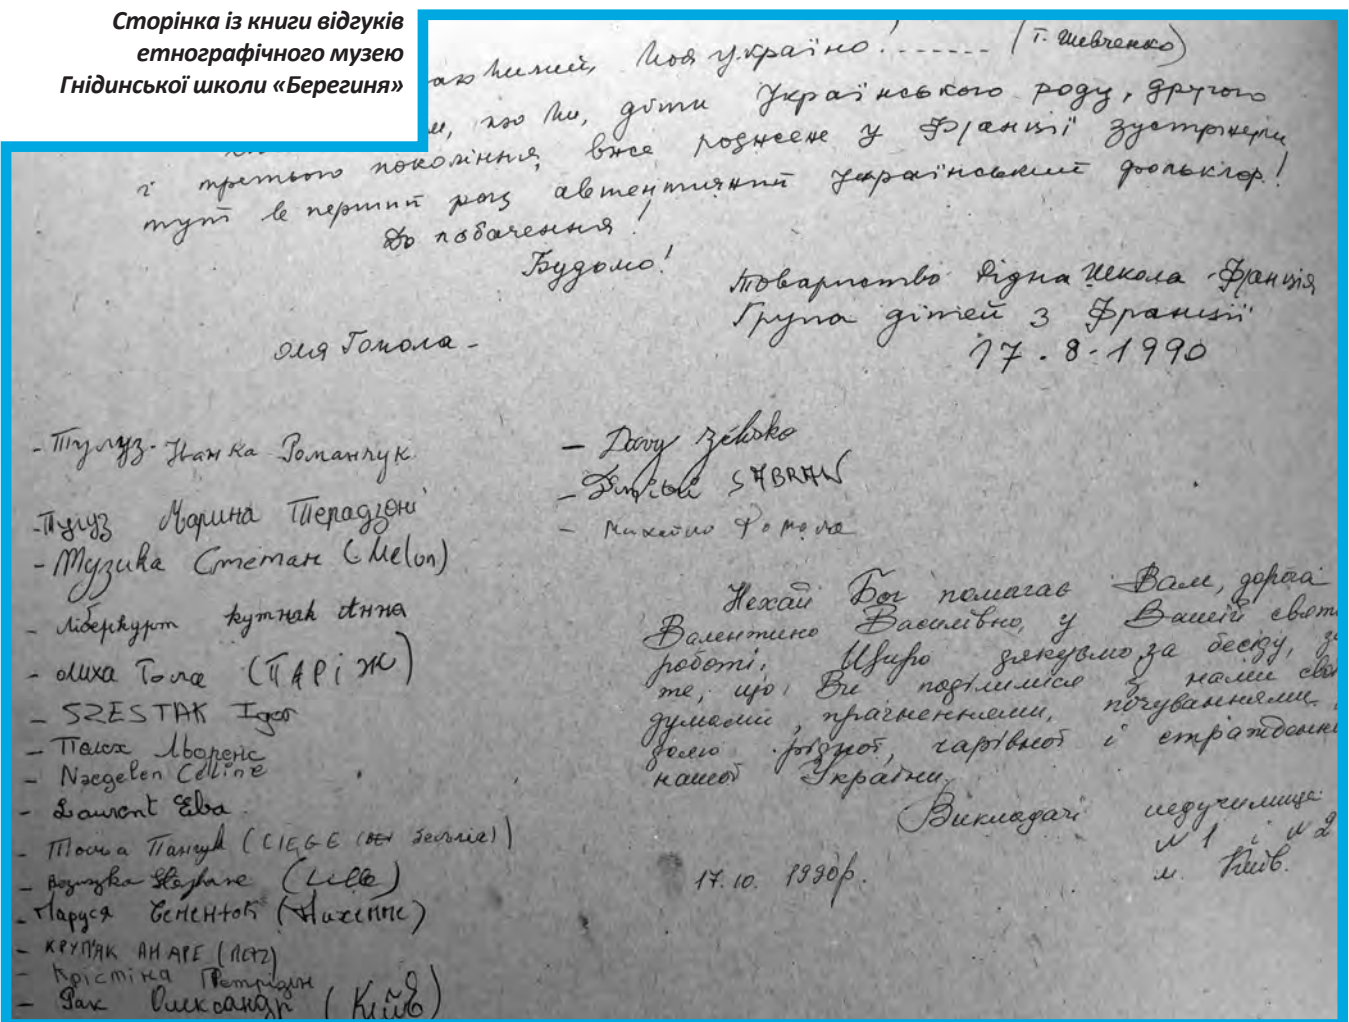 Сторінка із книги відгуків
етнографічного музею
Гнідинської школи «Берегиня»
Моя Україно!....... (Т. Шевченко)
що ми, діти Українського роду, другого
і третього покоління, вже роджене у Франції зустрінули
тут в перший раз автентичний український фольклор!
До побачення!
Будьмо!
Товариство Рідна Школа - Франція
Група дітей з Франції
17.8.1990
Оля Гомола -
- Тулуз - Іванка Романчук
- Тулуз Марина Терадзоні
- Музика Стетан (Melon)
- Ліберкурт Кутнак Анна
- Гола (ПАРІЖ)
- SZESTAK Igor
- Льоренс
- Naegelen Céline
- Laurent Eba
- Панчук (LIEGE Бельгія)
- Stephane (Lille)
- Маруся
- КРУП'ЯК АНДРЕ (МЕТZ)
- Крістіна
- Рак Олександр (Київ)
- Davy
- SABRAN
- Михайло Гомола
Нехай Бог помагає Вам, дорога
Валентино Василівно, у Вашій свят
роботі. Щиро дякуємо за бесіду, за
те, що Ви поділилися з нами сво
думами, прагненнями, почуваннями,
долею рідної, чарівної і стражденн
нашої України.
Викладачі педучилища
N 1 і N 2
м. Київ.
17.10. 1990р.